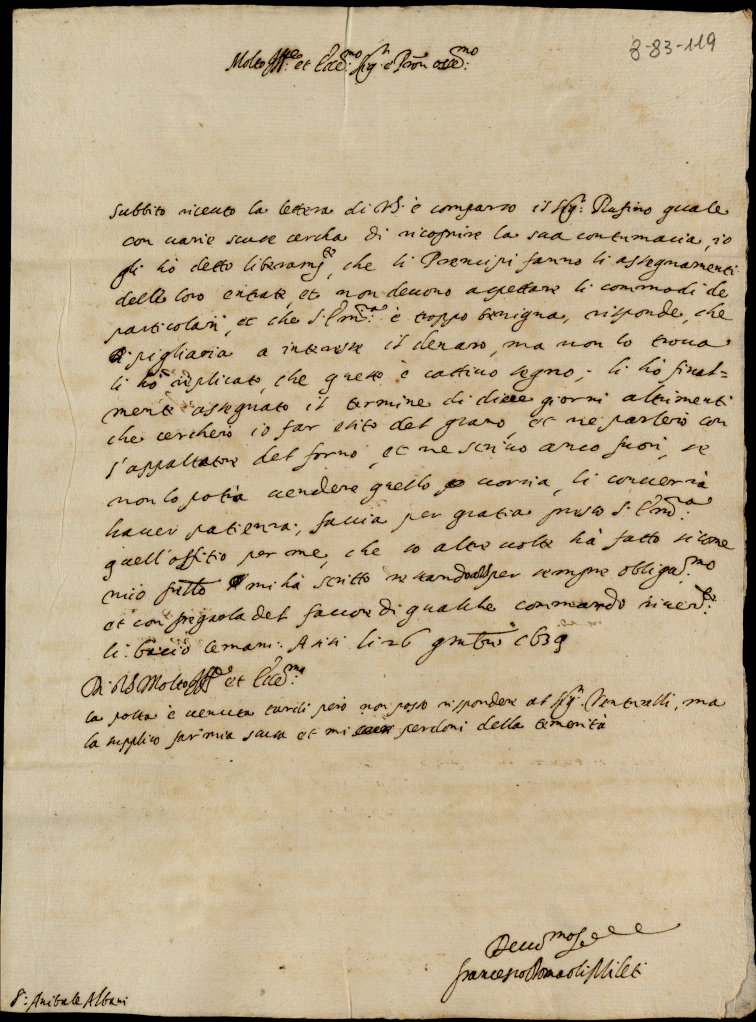 8-83-119
Molto Ill.re et Ecc.mo Sig.r e Pron oss.mo
Subbito riceuto la lettera di VS. è comparso il Sig.r Rufino quale
con uarie scuse cercha di ricoprire la sua contumacia, io
gli hò detto liberam.te, che li Prencipi fanno li assegnamenti
delle loro entrate, et non deuono aspettare li commodi de
particolari, et che S. Em.za è troppo benigna, risponde, che
pigliaria a interesse il denaro, ma non lo troua
li hò replicato, che questo è cattiuo segno, li hò final-
mente assegnato il termine di diece giorni altrimenti
che cercherò io far esito del grano, et ne parlerò con
l'appaltatore del forno, et ne scriuo anco fuori, se
non lo potrà uendere quello uorria, li conuerrà
hauer patienza, faccia per gratia presso S. Em.za
quell'offitio per me, che io altre uolte hà fatto si come
mio mi hà scritto restandoli per sempre obligat.mo
et con pregarla del fauore di qualche commando riuer.te
li bacio le mani. Asisi li 26 9mbre 1639
Di VS Molto Ill.re et Ecc.ma
la posta è uenuta tardi però non posso rispondere al Sig.r Venturelli, ma
la supplico far mia scusa et mi perdoni della temerità
Deuot.mo Se
Francesco
S.r Anibale Albani